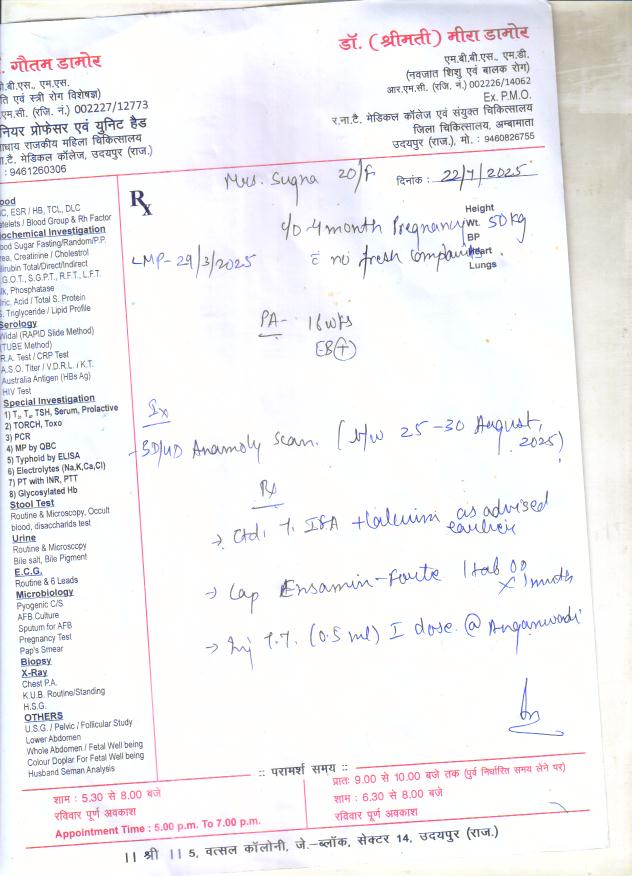 . गौतम डामोर
बी.बी.एस., एम.एस.
ति एवं स्त्री रोग विशेषज्ञ)
एम.सी. (रजि. नं.) 002227/12773
नियर प्रोफेसर एवं युनिट हैड
राजकीय महिला चिकित्सालय
ना.टै. मेडिकल कॉलेज, उदयपुर (राज.)
: 9461260306
डॉ. (श्रीमती) मीरा डामोर
एम.बी.बी.एस., एम.डी.
(नवजात शिशु एवं बालक रोग)
आर.एम.सी. (रजि. नं.) 002226/14062
Ex. P.M.O.
र.ना.टै. मेडिकल कॉलेज एवं संयुक्त चिकित्सालय
जिला चिकित्सालय, अम्बामाता
उदयपुर (राज.), मो. : 9460826755
Rx
Mrs. Sugna 20/F
दिनांक : 22/7/2025
c/o 4 month Pregnancy
LMP - 29/3/2025
c̄ no fresh complaints.
Height
Wt. 50 kg
BP
Heart
Lungs
PA - 16 wks
EB(+)
Ix
- 3D/4D Anamoly Scan. (b/w 25-30 August, 2025)
Rx
→ Ctd. T. IFA + Calcium as advised earlier
→ Cap Ensamin-Forte 1 tab OD x 1 month
→ Inj T.T. (0.5 ml) I dose. @ Anganwadi
ood
C, ESR / HB, TCL, DLC
atelets / Blood Group & Rh Factor
ochemical Investigation
ood Sugar Fasting/Random/P.P.
rea, Creatinine / Cholestrol
lirubin Total/Direct/Indirect
.G.O.T., S.G.P.T., R.F.T., L.F.T.
lk, Phosphatase
ric. Acid / Total S. Protein
. Triglyceride / Lipid Profile
Serology
Widal (RAPID Slide Method)
(TUBE Method)
R.A. Test / CRP Test
A.S.O. Titer / V.D.R.L. / K.T.
Australia Antigen (HBs Ag)
HIV Test
Special Investigation
1) T₃, T₄, TSH, Serum, Prolactive
2) TORCH, Toxo
3) PCR
4) MP by QBC
5) Typhoid by ELISA
6) Electrolytes (Na,K,Ca,Cl)
7) PT with INR, PTT
8) Glycosylated Hb
Stool Test
Routine & Microscopy, Occult
blood, disaccharids test
Urine
Routine & Microscopy
Bile salt, Bile Pigment
E.C.G.
Routine & 6 Leads
Microbiology
Pyogenic C/S
AFB Culture
Sputum for AFB
Pregnancy Test
Pap's Smear
Biopsy
X-Ray
Chest P.A.
K.U.B. Routine/Standing
H.S.G.
OTHERS
U.S.G. / Pelvic / Follicular Study
Lower Abdomen
Whole Abdomen / Fetal Well being
Colour Doplar For Fetal Well being
Husband Seman Analysis
:: परामर्श समय ::
शाम : 5.30 से 8.00 बजे
रविवार पूर्ण अवकाश
Appointment Time : 5.00 p.m. To 7.00 p.m.
प्रातः 9.00 से 10.00 बजे तक (पुर्व निर्धारित समय लेने पर)
शाम : 6.30 से 8.00 बजे
रविवार पूर्ण अवकाश
|| श्री || 5, वत्सल कॉलोनी, जे.-ब्लॉक, सेक्टर 14, उदयपुर (राज.)